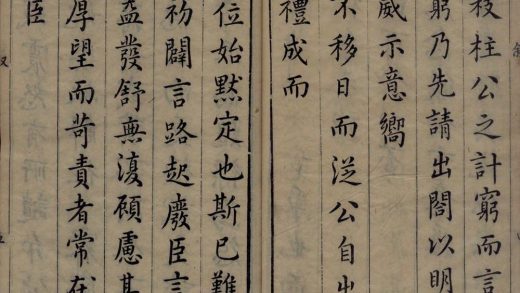 枝柱公之計窮而言
窮乃先請出閣以明
威示意嚮
不移日而從公自出
禮成而
位始默定也斯已難
初闢言路起廢臣言
益發舒無復顧慮
厚望而苛責者常在
臣